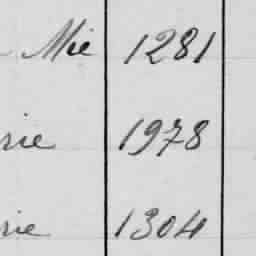 Mie 1281
rie 1978
rie 1304